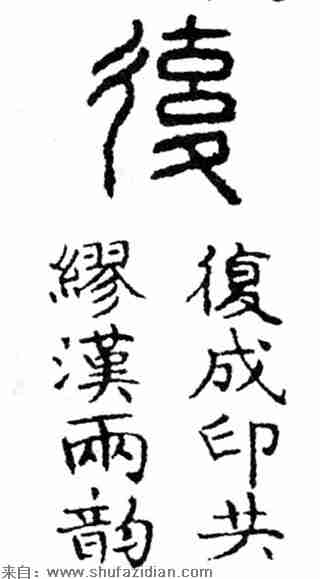 復
復成印共
繆漢兩韵
来自：www.shufazidian.com